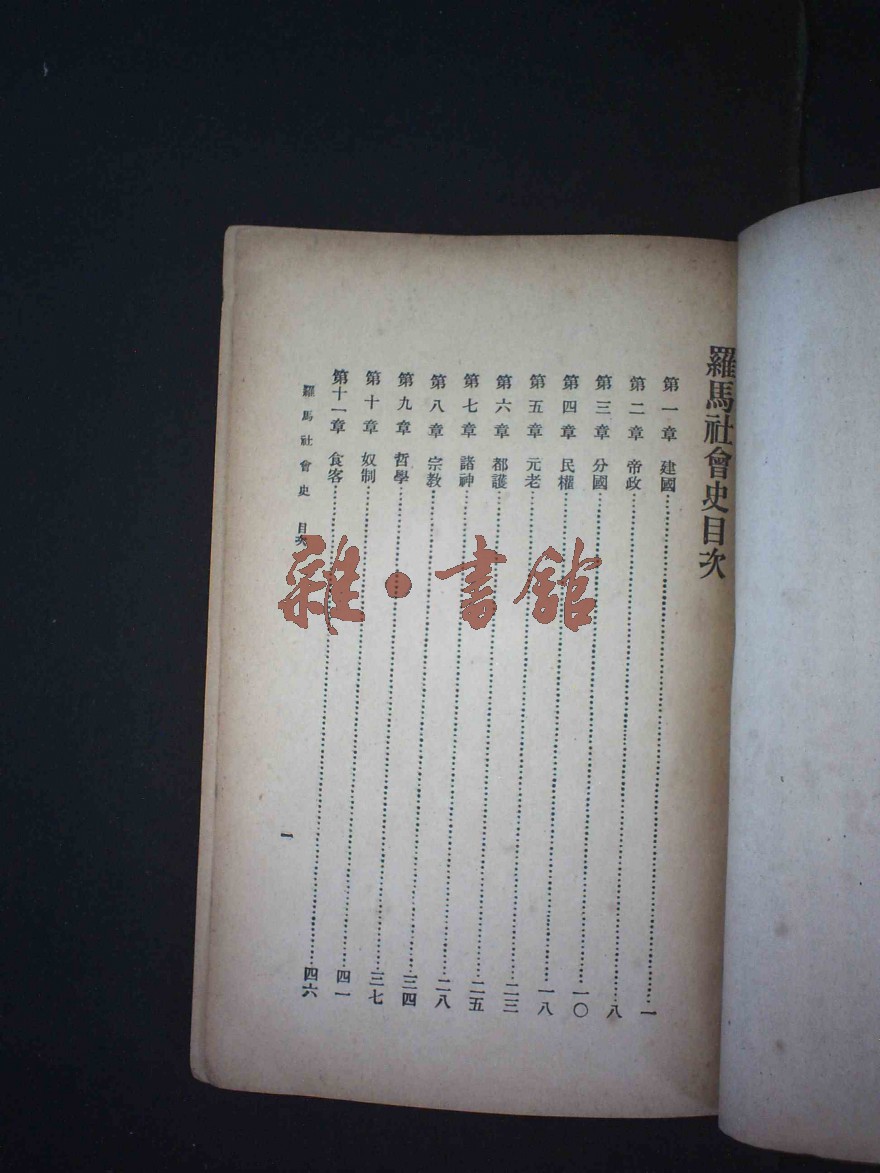 羅馬社會史目次
第一章 建國……一
第二章 帝政……八
第三章 分國……一〇
第四章 民權……一八
第五章 元老……二三
第六章 都護……二五
第七章 諸神……二八
第八章 宗教……三四
第九章 哲學……三七
第十章 奴制……四一
第十一章 食客……四六
羅馬社會史 目次
一
雜·書館